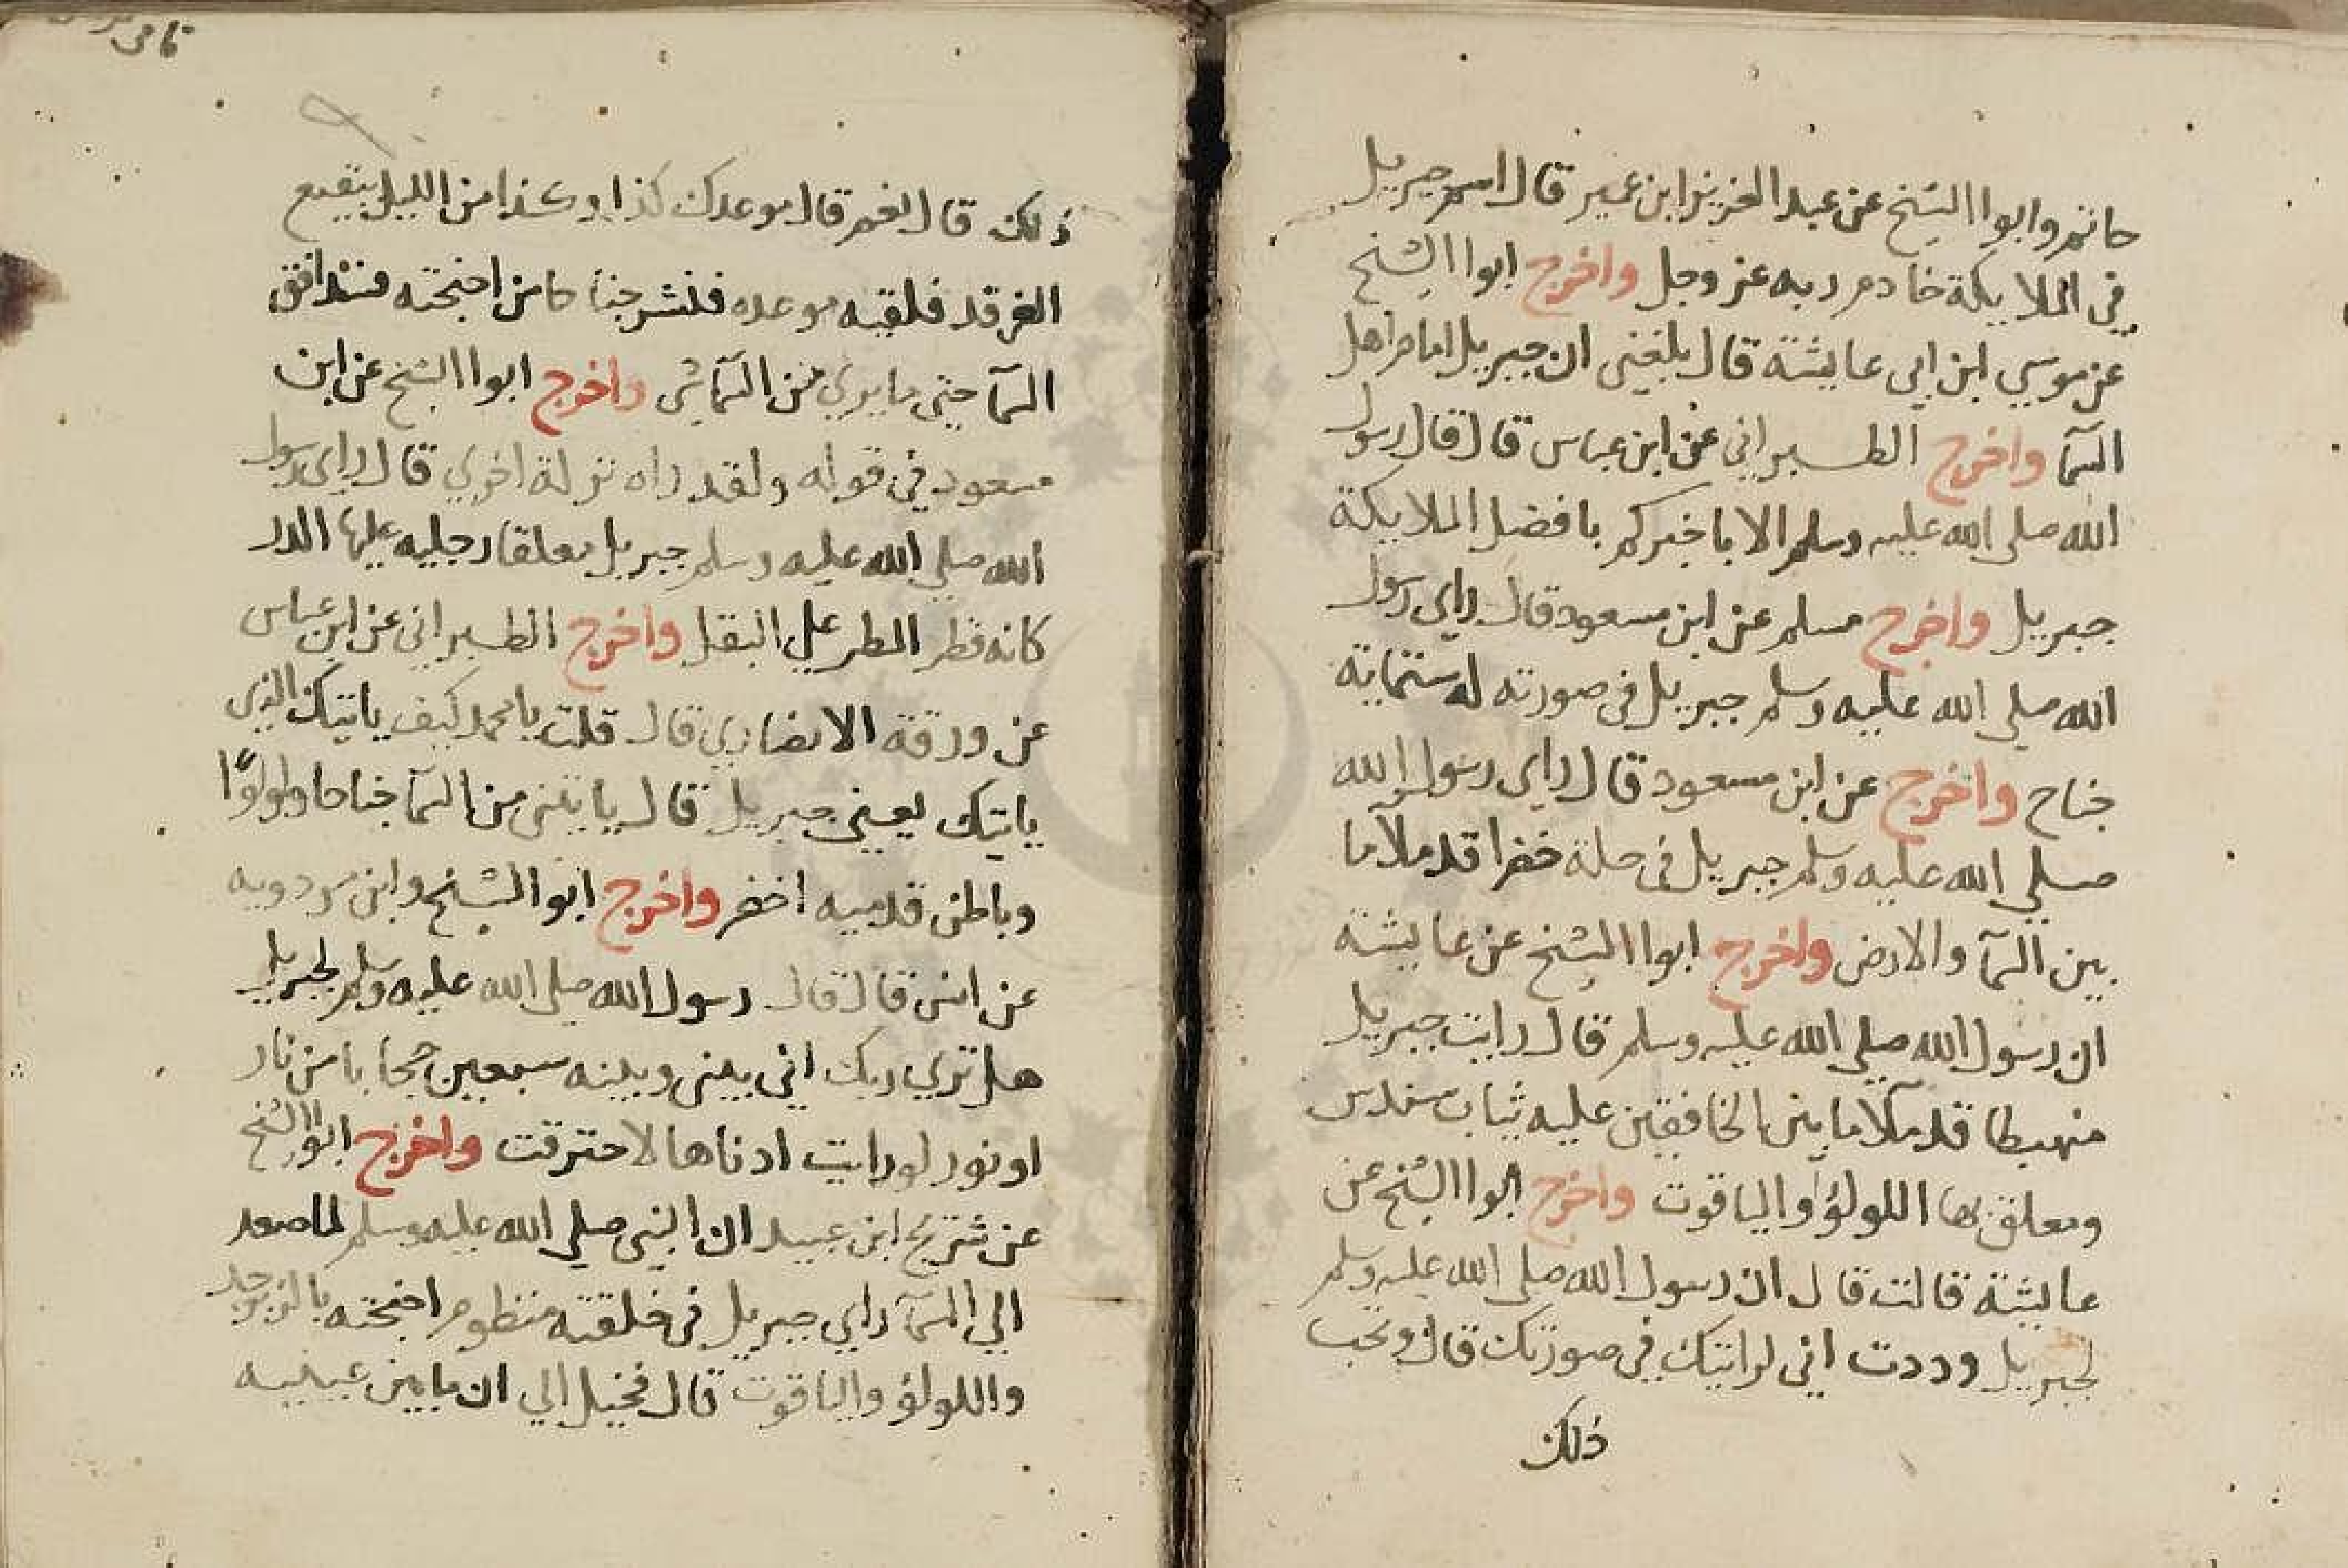 حاتم وابوا الشيخ عن عبد العزيز ابن عمير قال اسم جبريل
في الملايكة خادم ربه عز وجل واخرج ابوا الشيخ
عن موسي ابن ابي عايشة قال بلغني ان جبريل امام اهل
السمآ واخرج الطبراني عن ابن عباس قال قال رسول
الله صلي الله عليه وسلم الا باخبركم بافضل الملايكة
جبريل واخرج مسلم عن ابن مسعود قال راي رسول
الله صلي الله عليه وسلم جبريل في صورته له ستماية
جناح واخرج عن ابن مسعود قال راي رسول الله
صلي الله عليه وسلم جبريل في حلة خضرا قد ملآ ما
بين السمآ والارض واخرج ابوا الشيخ عن عايشة
ان رسول الله صلي الله عليه وسلم قال رايت جبريل
منهبطا قد ملآ ما بين الخافقين عليه ثياب سندس
ومعلق بها اللولؤ والياقوت واخرج ابوا الشيخ عن
عايشة قالت قال ان رسول الله صلي الله عليه وسلم
لجبريل وددت اني لرايتك في صورتك قال وتحب
ذلك
ذلك قال نعم قال موعدك كذا وكذا من الليل ببقيع
الغرقد فلقيه موعده فنشر جناحا من اجنحته فسد افق
السمآ حتي ما يري من السمآ شي واخرج ابوا الشيخ عن ابن
مسعود في قوله ولقد راه نزلة اخري قال راي رسول
الله صلي الله عليه وسلم جبريل معلقا رجليه عليها الدر
كانه قطر المطر علي البقل واخرج الطبراني عن ابن عباس
عن ورقة الانصاري قال قلت يا محمد كيف ياتيك الذي
ياتيك يعني جبريل قال ياتيني من السمآ جناحاه لولوًا
وباطن قدميه اخضر واخرج ابوا الشيخ وابن مردويه
عن انس قال قال رسول الله صلي الله عليه وسلم لجبريل
هل تري ربك اني بيني وبينه سبعين حجابا من نار
او نور لو رايت ادناها لاحترقت واخرج ابوا الشيخ
عن شريح ابن عبيد ان النبي صلي الله عليه وسلم لما صعد
الي السمآ راي جبريل في خلقته منظوم اجنحته بالزبرجد
واللولؤ والياقوت قال فخيل الي ان ما بين عينيه